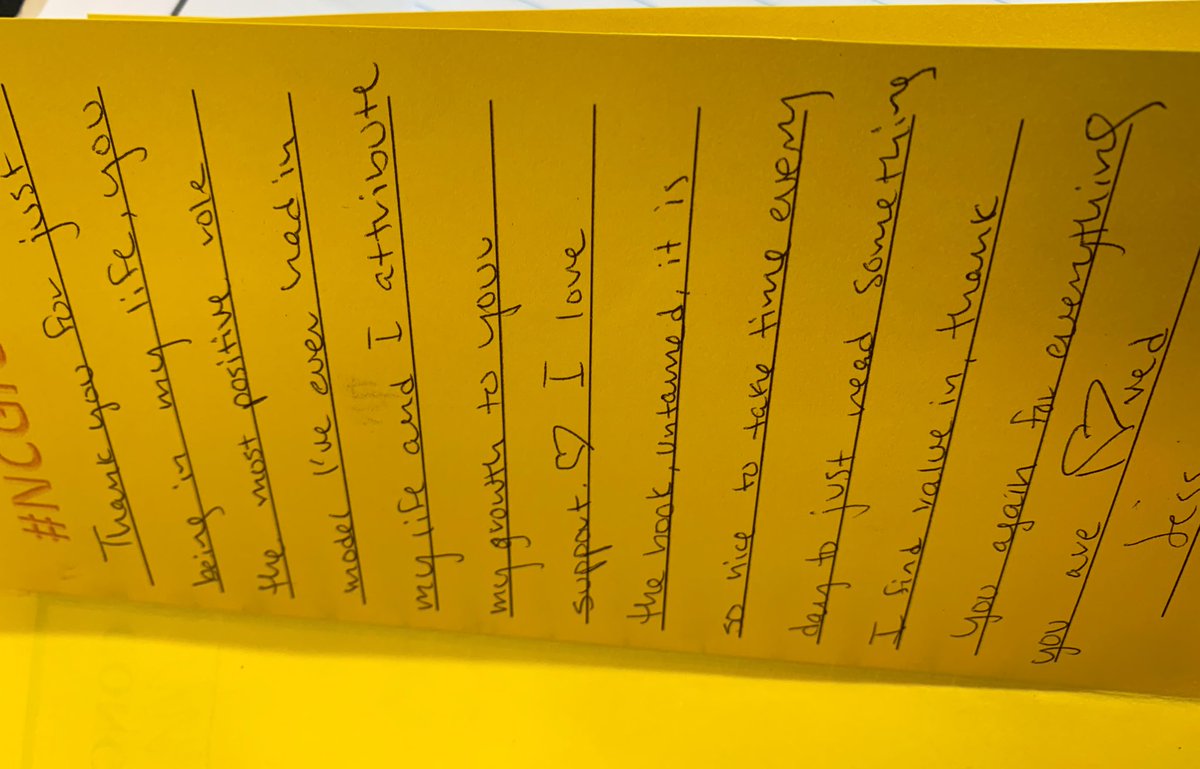 #NCGR
Thank you for just
being in my life, you
the most positive role
model I've ever had in
my life and I attribute
my growth to your
support. ♡ I love
the book, untamed, it is
so nice to take time every
day to just read something
I find value in, thank
you again for everything
you are ♡ ved
Jess